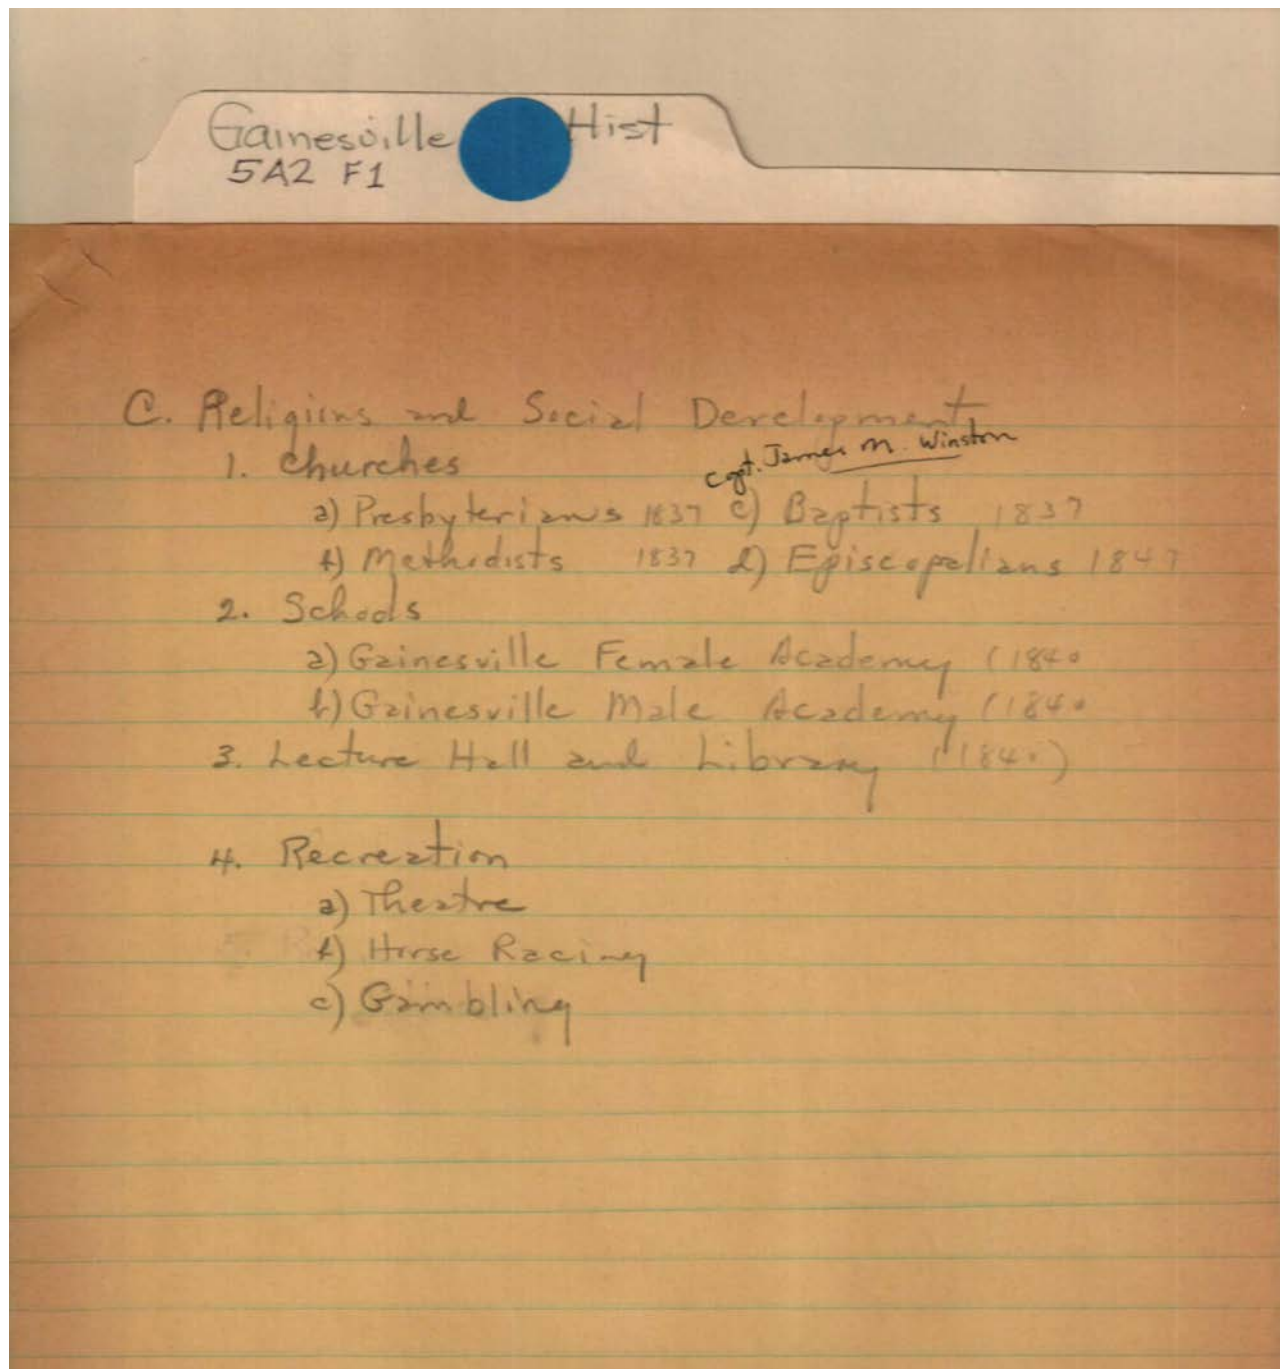 Gainesville Hist
5A2 F1
C. Religious and Social Development
1. Churches
Capt. James M. Winston
a) Presbyterians 1837 c) Baptists 1837
b) Methodists 1837 d) Episcopalians 1847
2. Schools
a) Gainesville Female Academy (1840
b) Gainesville Male Academy (1840
3. Lecture Hall and Library (1840)
4. Recreation
a) Theatre
b) Horse Racing
c) Gambling